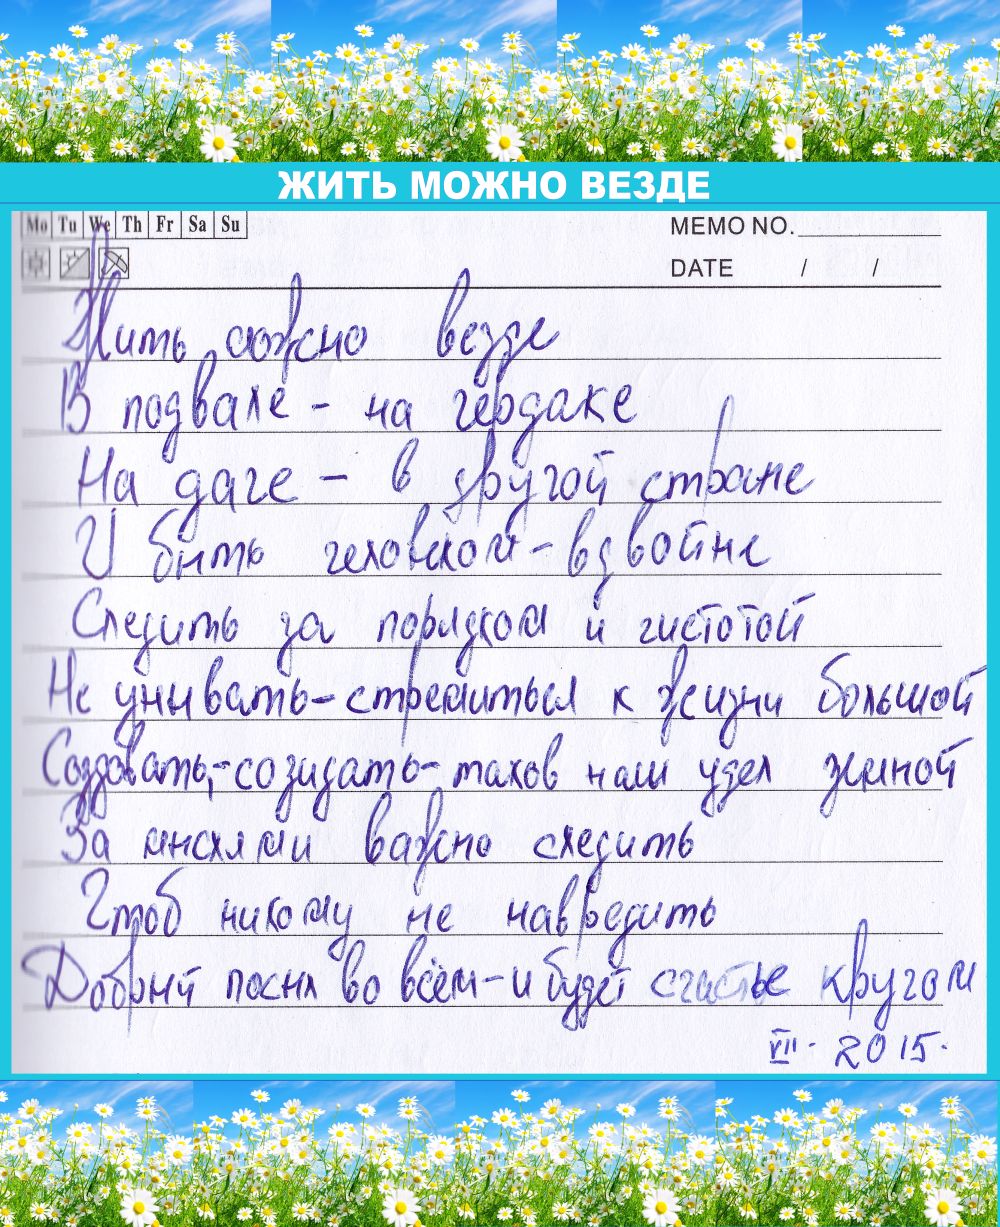 ЖИТЬ МОЖНО ВЕЗДЕ
Mo Tu We Th Fr Sa Su
MEMO NO.
DATE / /
Жить можно везде
В подвале - на чердаке
На даче - в другой стране
И быть человеком - вдвойне
Следить за порядком и чистотой
Не унывать - стремиться к жизни большой
Создавать, - созидать - таков наш удел земной
За мыслями важно следить
Чтоб никому не навредить
Добрый посыл во всём - и будет счастье кругом
VII. 2015.